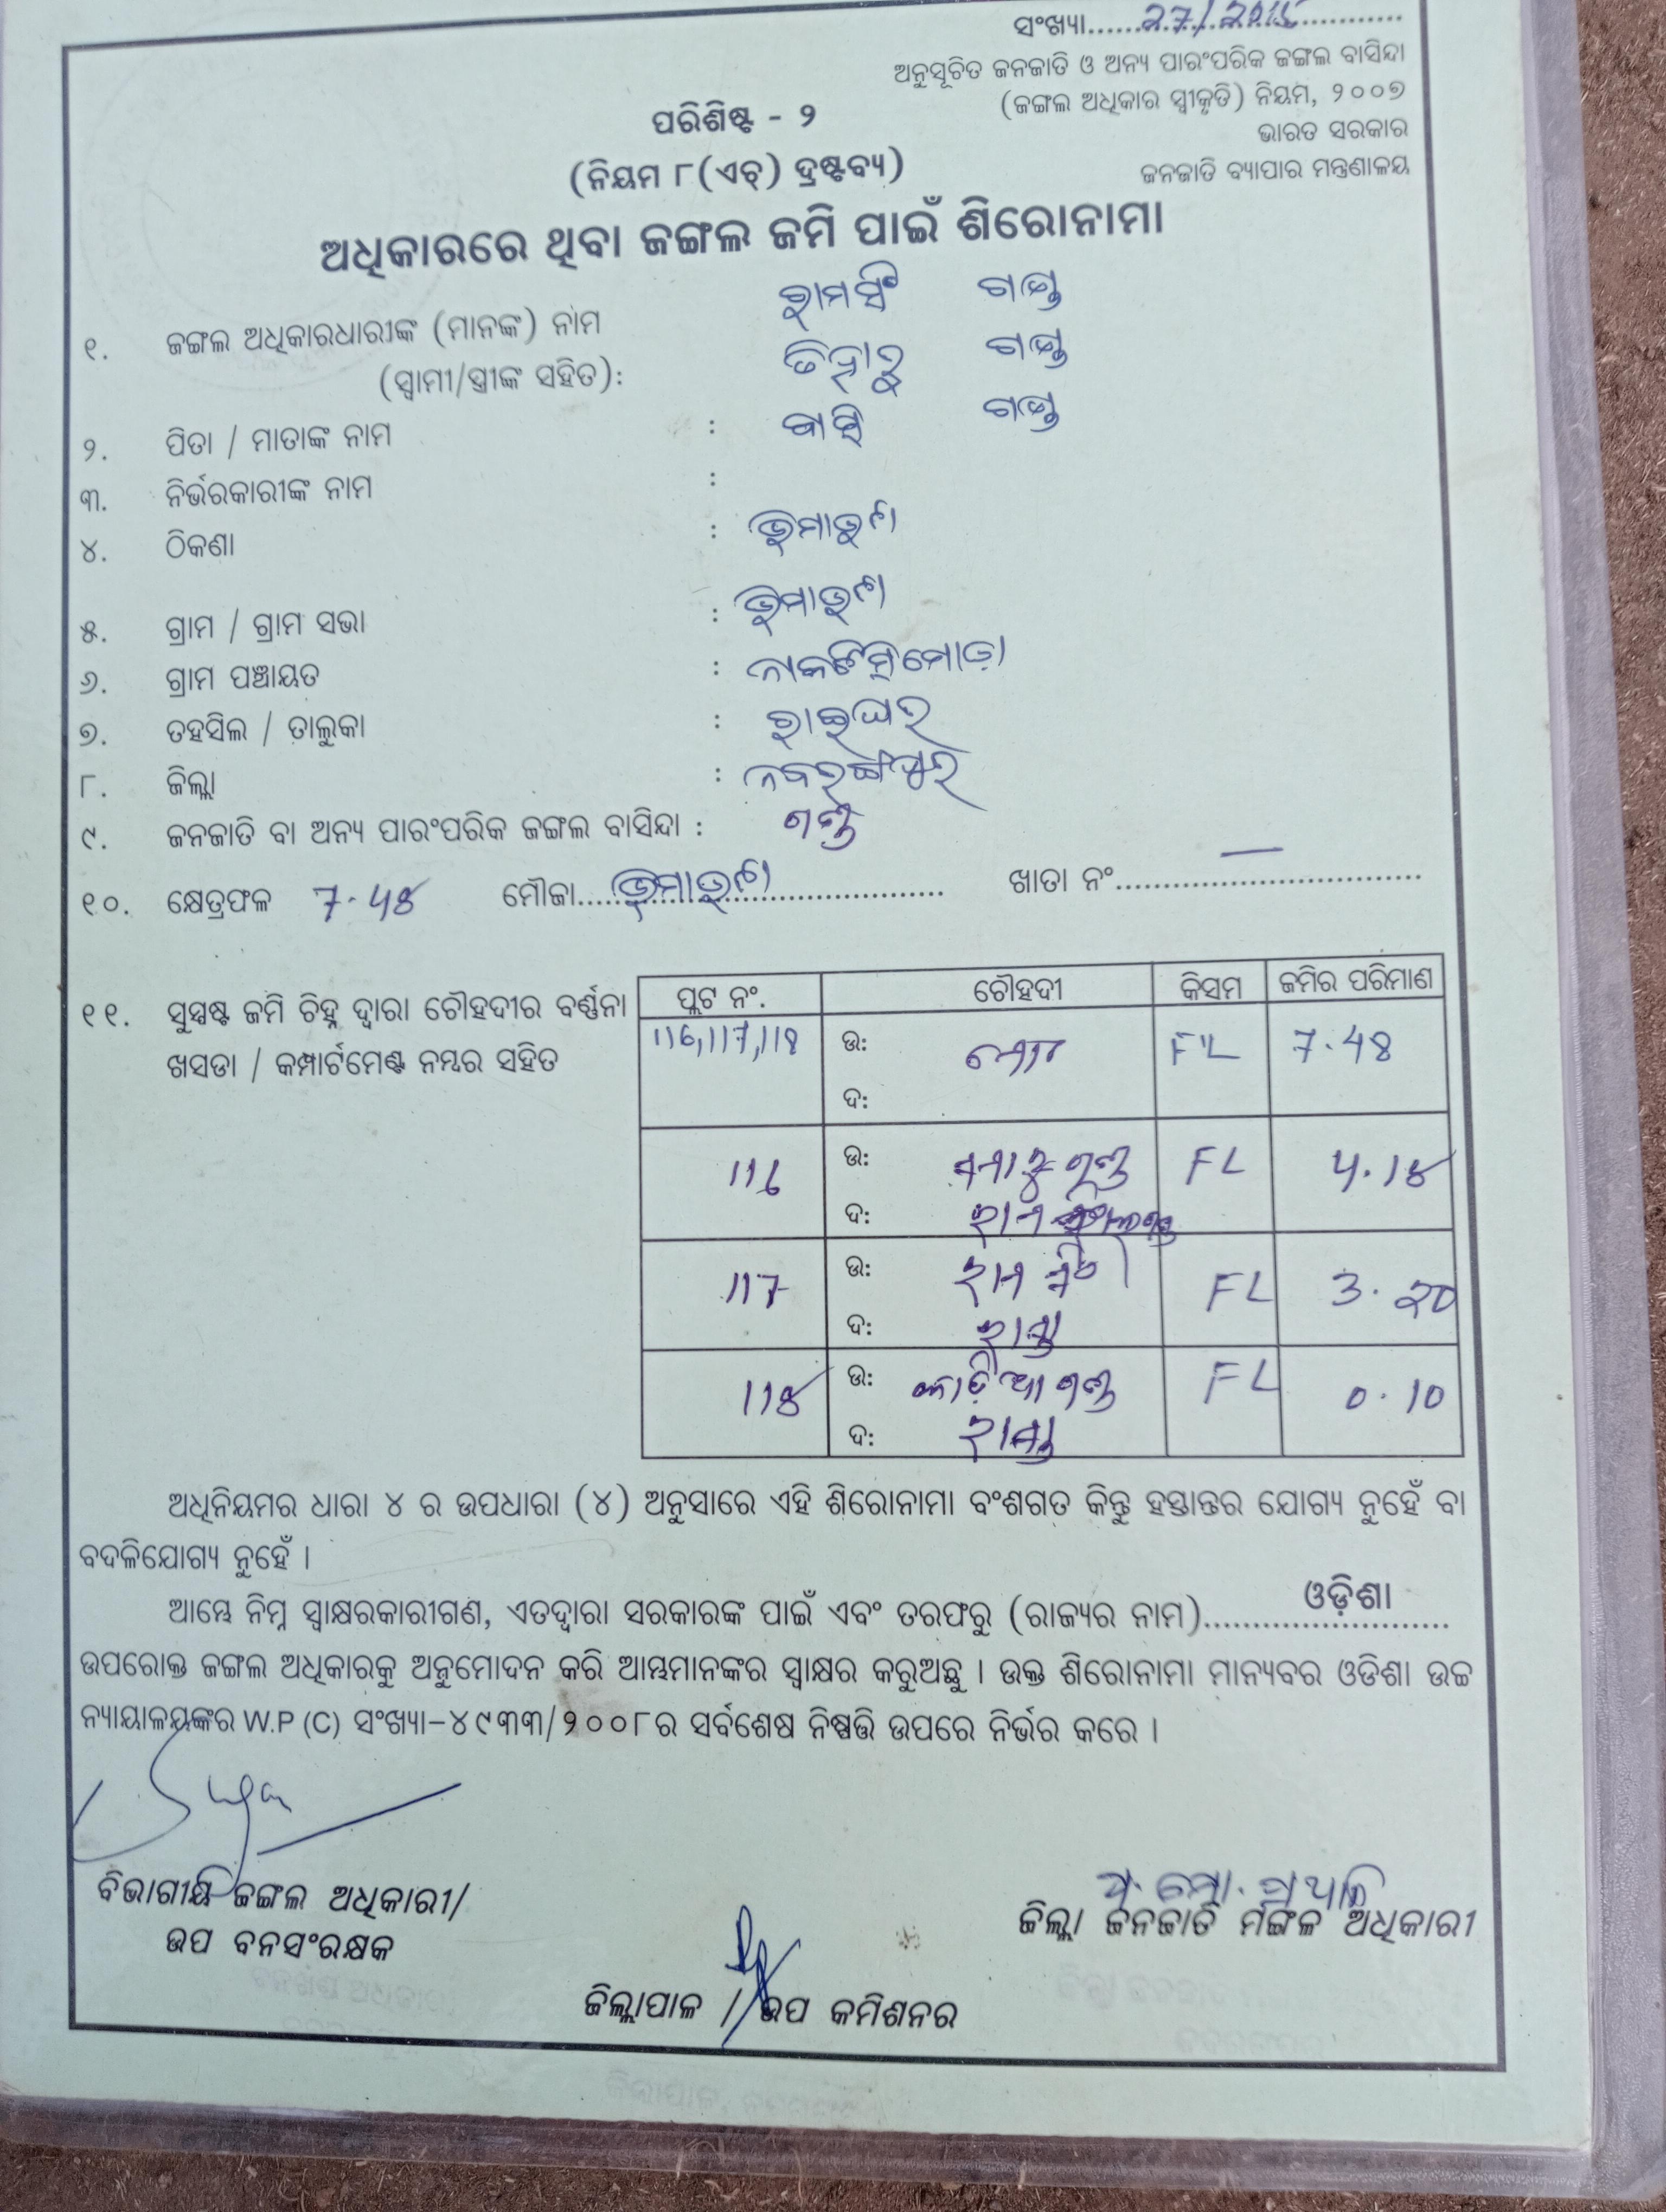 ସଂଖ୍ୟା.....27/2015.....
ଅନୁସୂଚିତ ଜନଜାତି ଓ ଅନ୍ୟ ପାରଂପରିକ ଜଙ୍ଗଲ ବାସିନ୍ଦା
(ଜଙ୍ଗଲ ଅଧିକାର ସ୍ୱୀକୃତି) ନିୟମ, ୨୦୦୭
ଭାରତ ସରକାର
ଜନଜାତି ବ୍ୟାପାର ମନ୍ତ୍ରଣାଳୟ
ପରିଶିଷ୍ଟ - ୨
(ନିୟମ ୮(ଏଚ୍) ଦ୍ରଷ୍ଟବ୍ୟ)
ଅଧିକାରରେ ଥିବା ଜଙ୍ଗଲ ଜମି ପାଇଁ ଶିରୋନାମା
୧. ଜଙ୍ଗଲ ଅଧିକାରଧାରୀଙ୍କ (ମାନଙ୍କ) ନାମ ରାମସିଂ ଗଣ୍ଡ
(ସ୍ୱାମୀ/ସ୍ତ୍ରୀଙ୍କ ସହିତ): ଗଣ୍ଡ
୨. ପିତା / ମାତାଙ୍କ ନାମ : ଗଣ୍ଡ
୩. ନିର୍ଭରକାରୀଙ୍କ ନାମ :
୪. ଠିକଣା :
୫. ଗ୍ରାମ / ଗ୍ରାମ ସଭା :
୬. ଗ୍ରାମ ପଞ୍ଚାୟତ : ନାକଟିସିମୋଡ଼ା
୭. ତହସିଲ / ତାଲୁକା : ରାଇଘର
୮. ଜିଲ୍ଲା : ନବରଙ୍ଗପୁର
୯. ଜନଜାତି ବା ଅନ୍ୟ ପାରଂପରିକ ଜଙ୍ଗଲ ବାସିନ୍ଦା : ଗଣ୍ଡ
୧୦. କ୍ଷେତ୍ରଫଳ 7.48 ମୌଜା.......... ଖାତା ନଂ.....—.....
୧୧. ସୁସ୍ପଷ୍ଟ ଜମି ଚିହ୍ନ ଦ୍ୱାରା ଚୌହଦୀର ବର୍ଣ୍ଣନା
ଖସଡା / କମ୍ପାର୍ଟମେଣ୍ଟ ନମ୍ବର ସହିତ
ପ୍ଲଟ ନଂ. ଚୌହଦୀ କିସମ ଜମିର ପରିମାଣ
116,117,118 ଉ: FL 7.48
ଦ:
116 ଉ: ଗଣ୍ଡ FL 4.18
ଦ: ରାମ
117 ଉ: ରାମ ସିଂ FL 3.20
ଦ: ରାସ୍ତା
118 ଉ: ଗଣ୍ଡ FL 0.10
ଦ: ରାସ୍ତା
ଅଧିନିୟମର ଧାରା ୪ ର ଉପଧାରା (୪) ଅନୁସାରେ ଏହି ଶିରୋନାମା ବଂଶଗତ କିନ୍ତୁ ହସ୍ତାନ୍ତର ଯୋଗ୍ୟ ନୁହେଁ ବା
ବଦଳିଯୋଗ୍ୟ ନୁହେଁ ।
ଆମ୍ଭେ ନିମ୍ନ ସ୍ୱାକ୍ଷରକାରୀଗଣ, ଏତଦ୍ୱାରା ସରକାରଙ୍କ ପାଇଁ ଏବଂ ତରଫରୁ (ରାଜ୍ୟର ନାମ).....ଓଡ଼ିଶା.....
ଉପରୋକ୍ତ ଜଙ୍ଗଲ ଅଧିକାରକୁ ଅନୁମୋଦନ କରି ଆମ୍ଭମାନଙ୍କର ସ୍ୱାକ୍ଷର କରୁଅଛୁ । ଉକ୍ତ ଶିରୋନାମା ମାନ୍ୟବର ଓଡିଶା ଉଚ୍ଚ
ନ୍ୟାୟାଳୟଙ୍କର W.P (C) ସଂଖ୍ୟା-୪୯୩୩/୨୦୦୮ର ସର୍ବଶେଷ ନିଷ୍ପତ୍ତି ଉପରେ ନିର୍ଭର କରେ ।
ବିଭାଗୀୟ ଜଙ୍ଗଲ ଅଧିକାରୀ/
ଉପ ବନସଂରକ୍ଷକ
ଜିଲ୍ଲା ଜନଜାତି ମଙ୍ଗଳ ଅଧିକାରୀ
ଜିଲ୍ଲାପାଳ / ଉପ କମିଶନର